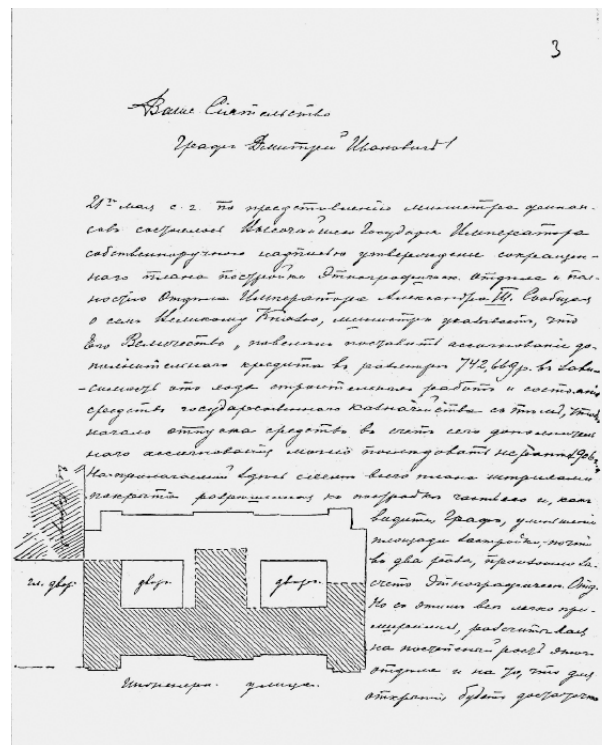 3
Ваше Сіятельство
Графъ Дмитрій Ивановичъ!
21го мая с. г. по представленію министра финан-
совъ состоялось Высочайшее Государя Императора
собственноручною надписью утвержденіе сокращен-
наго плана постройки Этнографическ. отдѣла и пол-
ностью Отдѣла Императора Александра III. Сообщая
о семъ Великому Князю, министръ указываетъ, что
Его Величество „повелѣлъ поставить ассигнованіе до-
полнительнаго кредита въ размѣрѣ 742,669 р. въ зави-
симость отъ хода строительныхъ работъ и состоянія
средствъ государственнаго казначейства съ тѣмъ, чтобы
начало отпуска средствъ въ счетъ сего дополнитель-
наго ассигнованія могло послѣдовать не ранѣе 1906 г.
На прилагаемой здѣсь схемѣ всего плана штрихами
покрыта разрѣшенная къ постройкѣ часть его и, какъ
видите, Графъ, уменьшеніе
площади застройки, почти
во два раза, произошло за
счетъ Этнографическ. Отд.
Но съ этимъ всѣ легко при-
мирились, разсчитывая
на постепенный ростъ этого
отдѣла и на то, что для
открытія будетъ достаточно
гл. дворъ
дворъ
дворъ
Инженерн. улица.